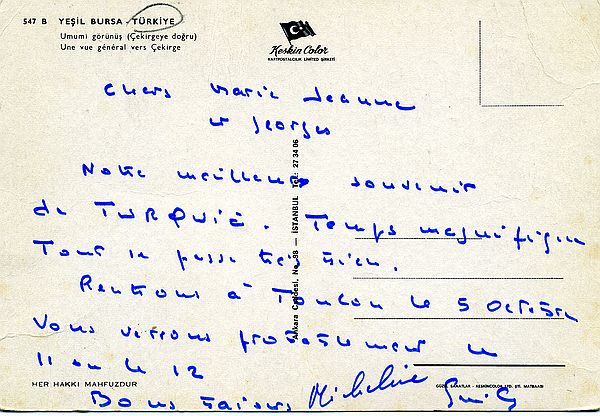 547 B YEŞİL BURSA - TÜRKİYE
Umumi görünüş (Çekirgeye doğru)
Une vue général vers Çekirge
Keskin Color
KARTPOSTALCILIK LİMİTED ŞİRKETİ
Chers Marie Jeanne
et Georges
Notre meilleur souvenir
de TURQUIE. Temps magnifique
Tout se passe très bien.
Rentrons à Toulon le 5 Octobre
Vous verrons probablement le
11 ou le 12
Bons baisers Micheline
Ankara Caddesi, No. 98 — İSTANBUL Tel: 27 34 06
HER HAKKI MAHFUZDUR
GÜZEL SANATLAR - KESKİNCOLOR LTD. ŞTİ. MATBAASI